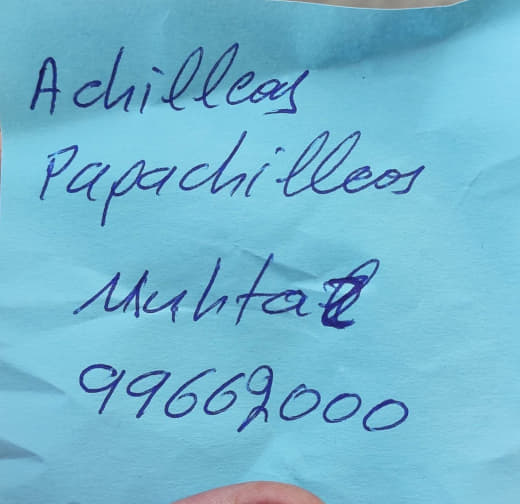 Achilleas
Papachilleos
Muhtar
99662000